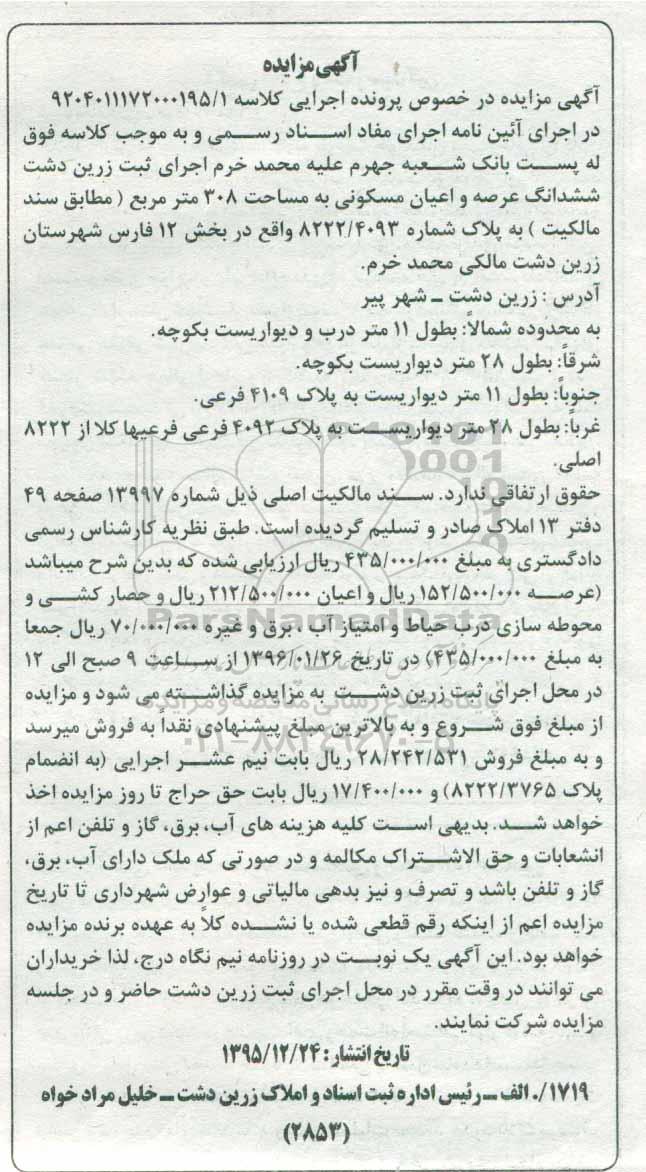 آگهی مزایده
آگهی مزایده در خصوص پرونده اجرایی کلاسه ۹۲۰۴۰۱۱۱۷۲۰۰۰۱۹۵/۱
در اجرای آئین نامه اجرای مفاد اسناد رسمی و به موجب کلاسه فوق
له پست بانک شعبه جهرم علیه محمد خرم اجرای ثبت زرین دشت
ششدانگ عرصه و اعیان مسکونی به مساحت ۳۰۸ متر مربع ( مطابق سند
مالکیت ) به پلاک شماره ۸۲۲۲/۴۰۹۳ واقع در بخش ۱۲ فارس شهرستان
زرین دشت مالکی محمد خرم.
آدرس : زرین دشت ـ شهر پیر
به محدوده شمالاً: بطول ۱۱ متر درب و دیواریست بکوچه.
شرقاً: بطول ۲۸ متر دیواریست بکوچه.
جنوباً: بطول ۱۱ متر دیواریست به پلاک ۴۱۰۹ فرعی.
غرباً: بطول ۲۸ متر دیواریست به پلاک ۴۰۹۲ فرعی فرعیها کلا از ۸۲۲۲
اصلی.
حقوق ارتفاقی ندارد. سند مالکیت اصلی ذیل شماره ۱۳۹۹۷ صفحه ۴۹
دفتر ۱۳ املاک صادر و تسلیم گردیده است. طبق نظریه کارشناس رسمی
دادگستری به مبلغ ۴۳۵/۰۰۰/۰۰۰ ریال ارزیابی شده که بدین شرح میباشد
(عرصه ۱۵۲/۵۰۰/۰۰۰ ریال و اعیان ۲۱۲/۵۰۰/۰۰۰ ریال و حصار کشی و
محوطه سازی درب حیاط و امتیاز آب ، برق و غیره ۷۰/۰۰۰/۰۰۰ ریال جمعا
به مبلغ ۴۳۵/۰۰۰/۰۰۰) در تاریخ ۱۳۹۶/۰۱/۲۶ از ساعت ۹ صبح الی ۱۲
در محل اجرای ثبت زرین دشت به مزایده گذاشته می شود و مزایده
از مبلغ فوق شروع و به بالاترین مبلغ پیشنهادی نقداً به فروش میرسد
و به مبلغ فروش ۲۸/۲۴۲/۵۳۱ ریال بابت نیم عشر اجرایی (به انضمام
پلاک ۸۲۲۲/۳۷۶۵) و ۱۷/۴۰۰/۰۰۰ ریال بابت حق حراج تا روز مزایده اخذ
خواهد شد. بدیهی است کلیه هزینه های آب، برق، گاز و تلفن اعم از
انشعابات و حق الاشتراک مکالمه و در صورتی که ملک دارای آب، برق،
گاز و تلفن باشد و تصرف و نیز بدهی مالیاتی و عوارض شهرداری تا تاریخ
مزایده اعم از اینکه رقم قطعی شده یا نشده کلاً به عهده برنده مزایده
خواهد بود. این آگهی یک نوبت در روزنامه نیم نگاه درج، لذا خریداران
می توانند در وقت مقرر در محل اجرای ثبت زرین دشت حاضر و در جلسه
مزایده شرکت نمایند.
تاریخ انتشار: ۱۳۹۵/۱۲/۲۴
۱۷۱۹/. الف ـ رئیس اداره ثبت اسناد و املاک زرین دشت ـ خلیل مراد خواه
(۲۸۵۳)
ParsNamadData
پایگاه اطلاع رسانی مناقصه و مزایده
۰۲۱-۸۸۳۴۹۶۷۰-۵